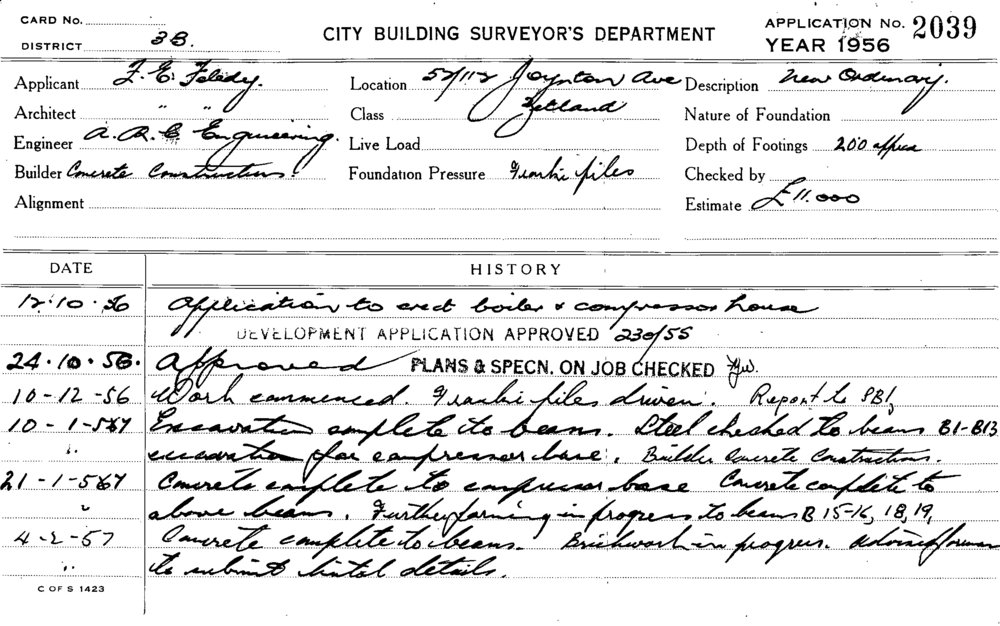 CARD No.
DISTRICT 3B.
CITY BUILDING SURVEYOR'S DEPARTMENT
APPLICATION No. 2039
YEAR 1956
Applicant F. E. Feledy.
Location 52/112 Joynton Ave
Zetland
Description New Ordinary.
Architect " "
Class
Nature of Foundation
Engineer A. R. C. Engineering.
Live Load
Depth of Footings 200 approx
Builder Concrete Constructions.
Foundation Pressure Franki piles
Checked by
Alignment
Estimate £11.000
DATE HISTORY
12.10.56 Application to erect boiler & compressor house
DEVELOPMENT APPLICATION APPROVED 230/55
24.10.56. Approved PLANS & SPECN. ON JOB CHECKED
10-12-56 Work commenced. Franki piles driven. Report to SB1,
10-1-57 Excavation complete to beams. Steel checked to beams B1-B13
" excavation for compressor base. Builder Concrete Constructions.
21-1-57 Concrete complete to compressor base Concrete complete to
" above beams. Further forming in progress to beams B 15-16, 18, 19,
4-2-57 Concrete complete to beams. Brickwork in progress. Advised foreman
" to submit lintol details.
C OF S 1423